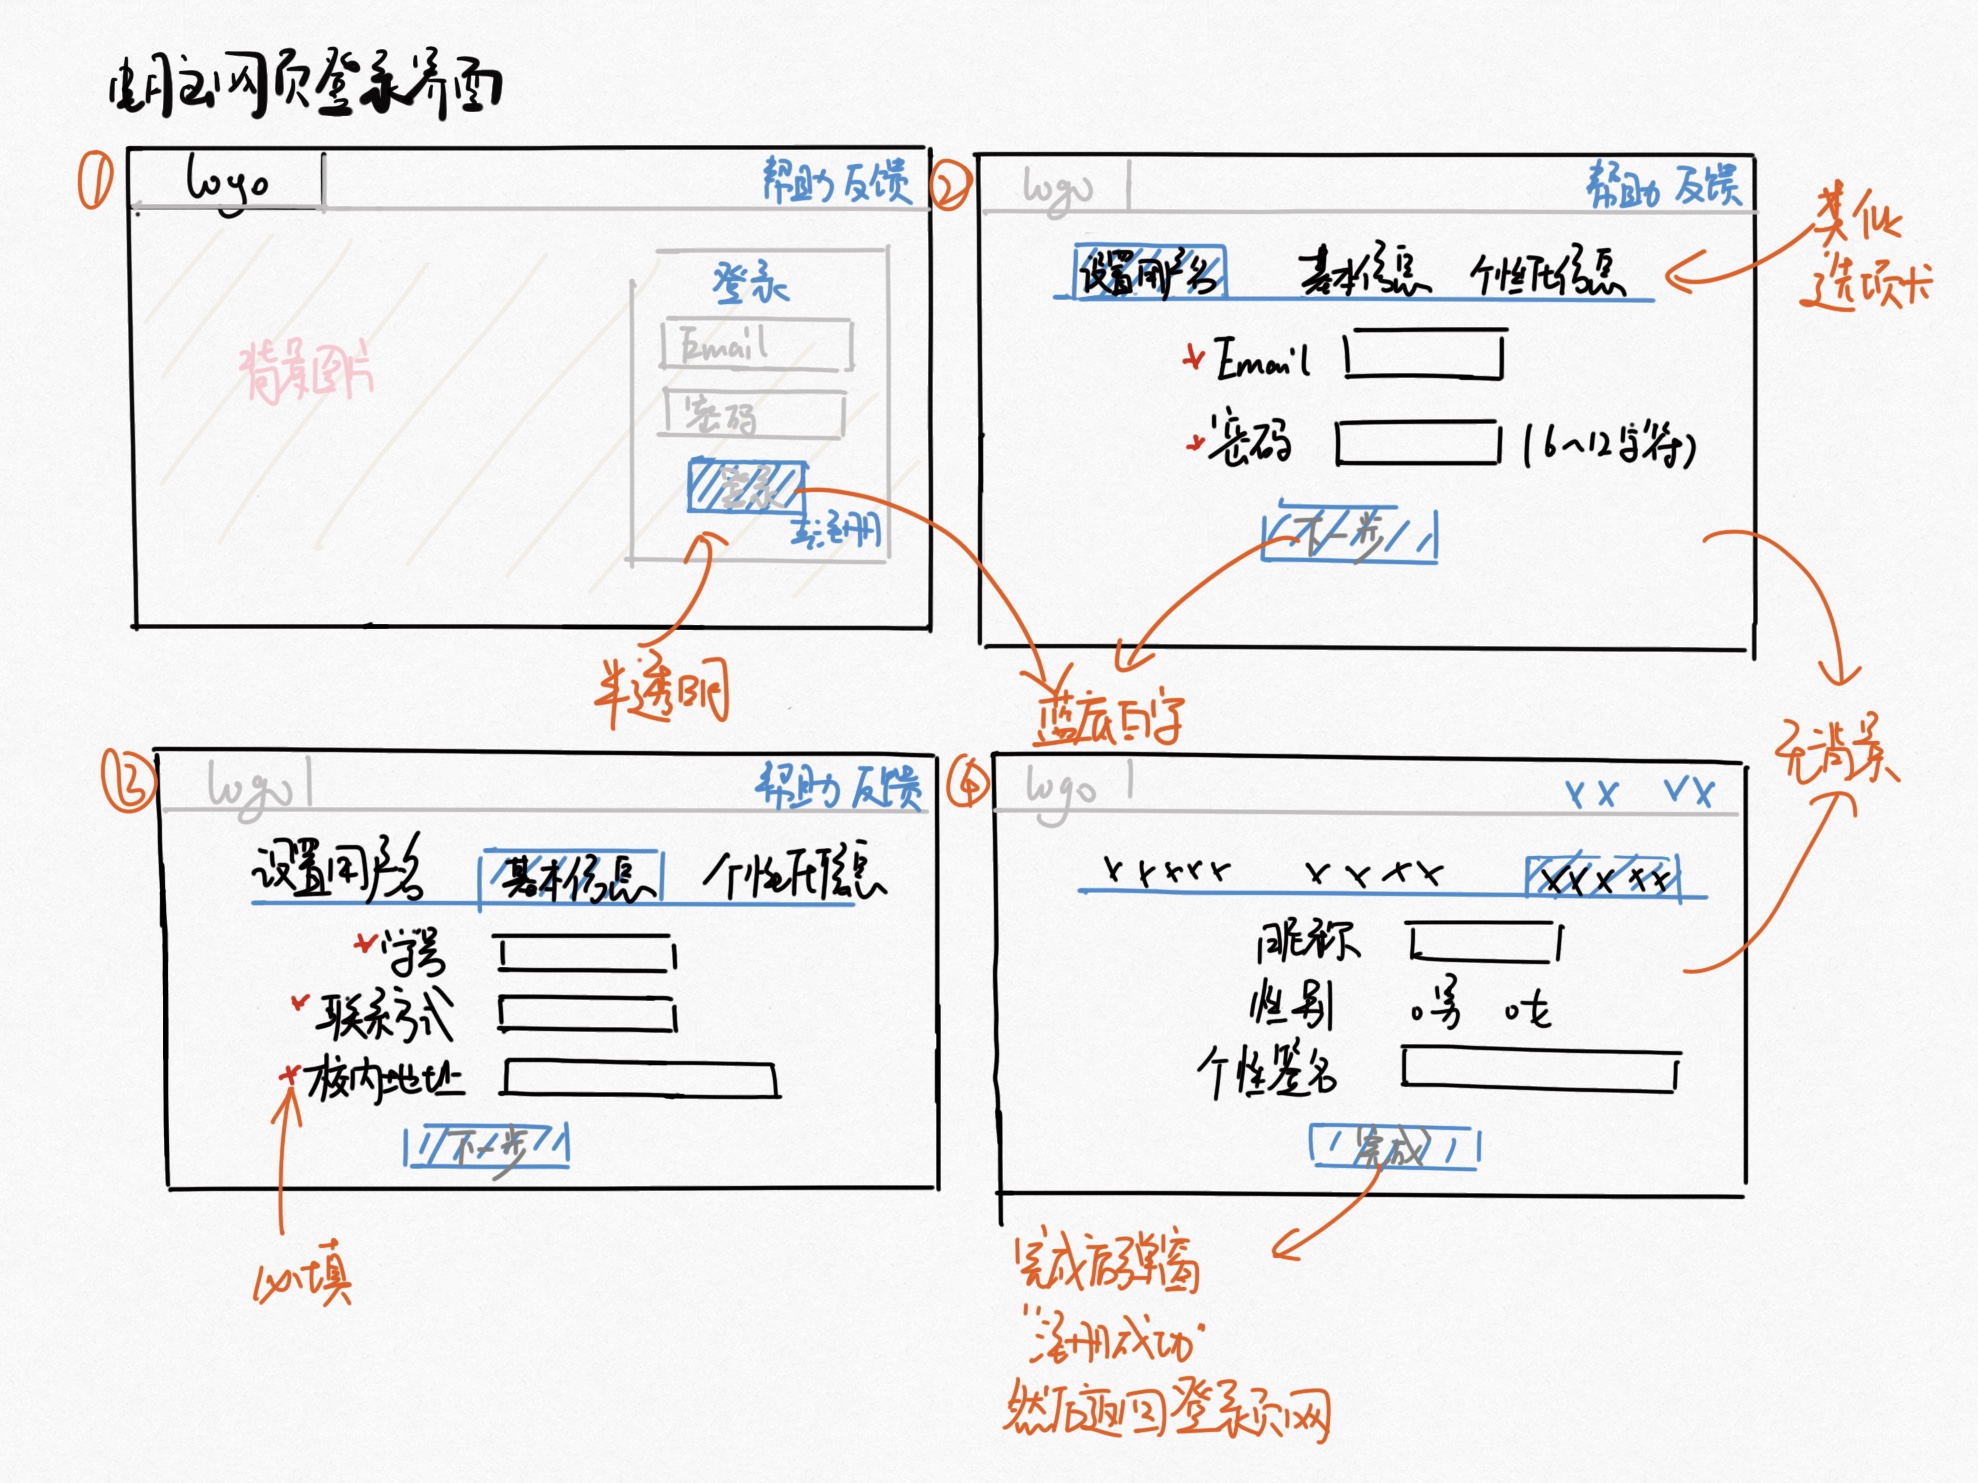 电脑网页登录界面
① logo 帮助 反馈
登录
Email
背景图片
密码
登录
去注册
半透明
② logo 帮助 反馈
类似
选项卡
设置用户名 基本信息 个性化信息
* Email
* 密码 (6~12字符)
下一步
蓝底白字
无背景
③ logo 帮助 反馈
设置用户名 基本信息 个性化信息
* 学号
* 联系方式
* 校内地址
下一步
必填
④ logo xx xx
xxxxx xxxx xxxxx
昵称
性别 ○男 ○女
个性签名
完成
完成后弹窗
"注册成功"
然后返回登录页网